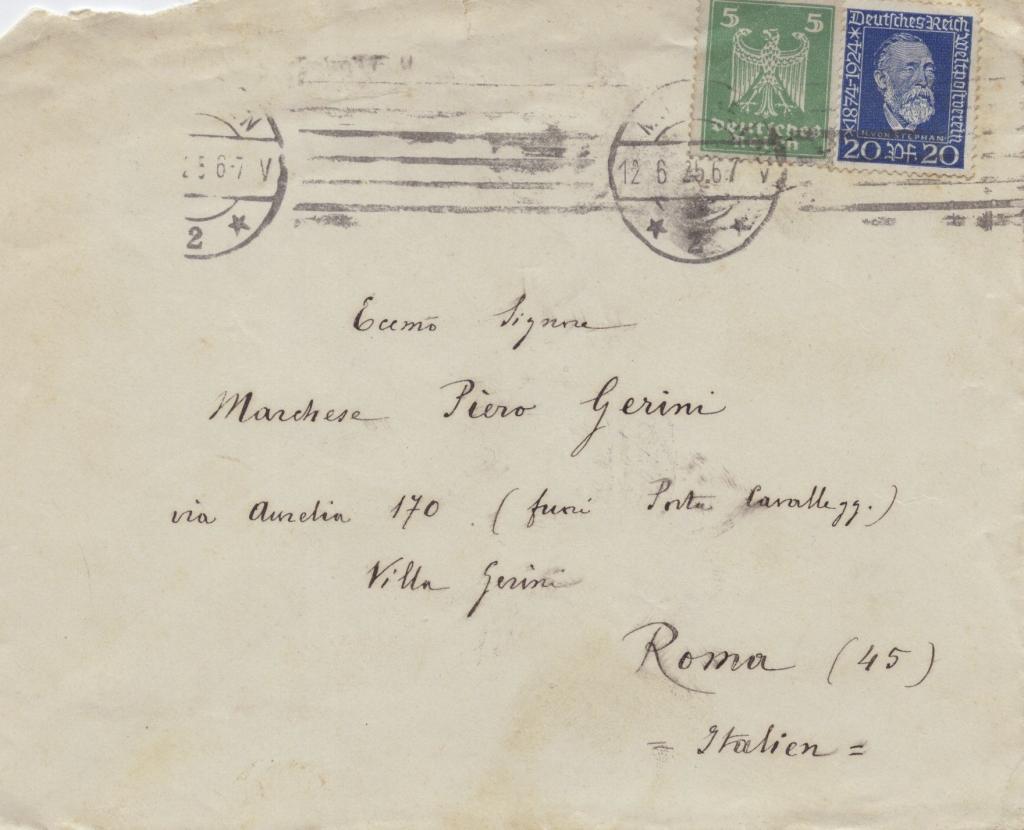 5 5
Deutsches Reich
Deutsches Reich
Weltpostverein
*1874-1924*
H. VON STEPHAN
20 Pf. 20
5 6-7 V
2
12 6 25.6-7 V
2
Eccmo Signore
Marchese Piero Gerini
via Aurelia 170 (fuori Porta Cavallegg.)
Villa Gerini
Roma (45)
= Italien =